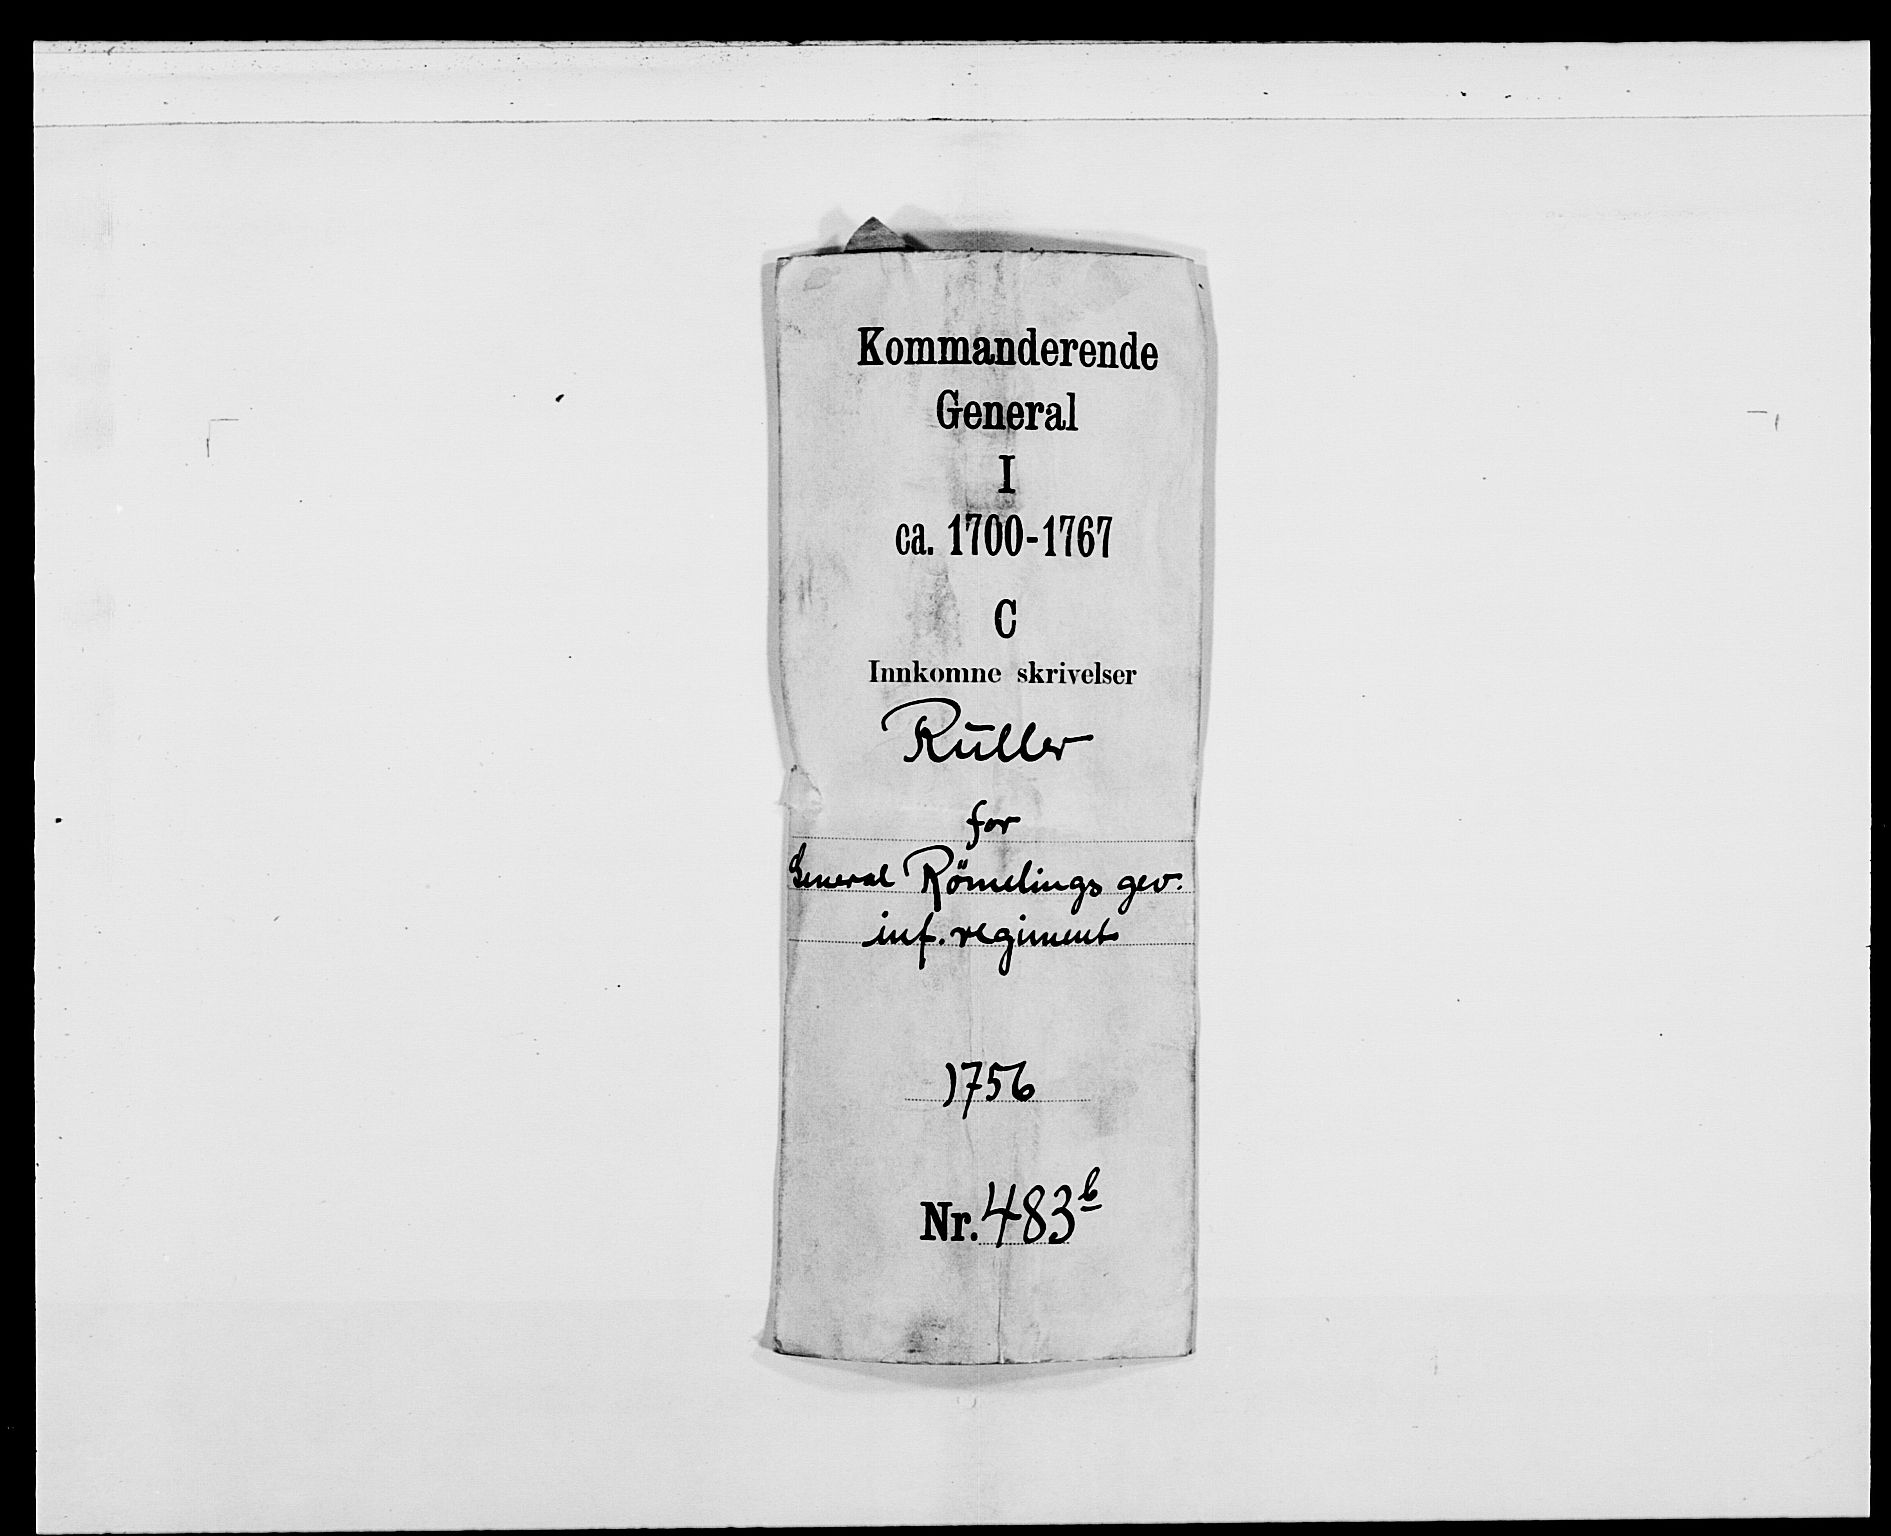 Kommanderende
General
I
ca. 1700-1767
C
Innkomne skrivelser
Rūller
for
General Römelings gev.
inf. regiment
1756
Nr. 483b